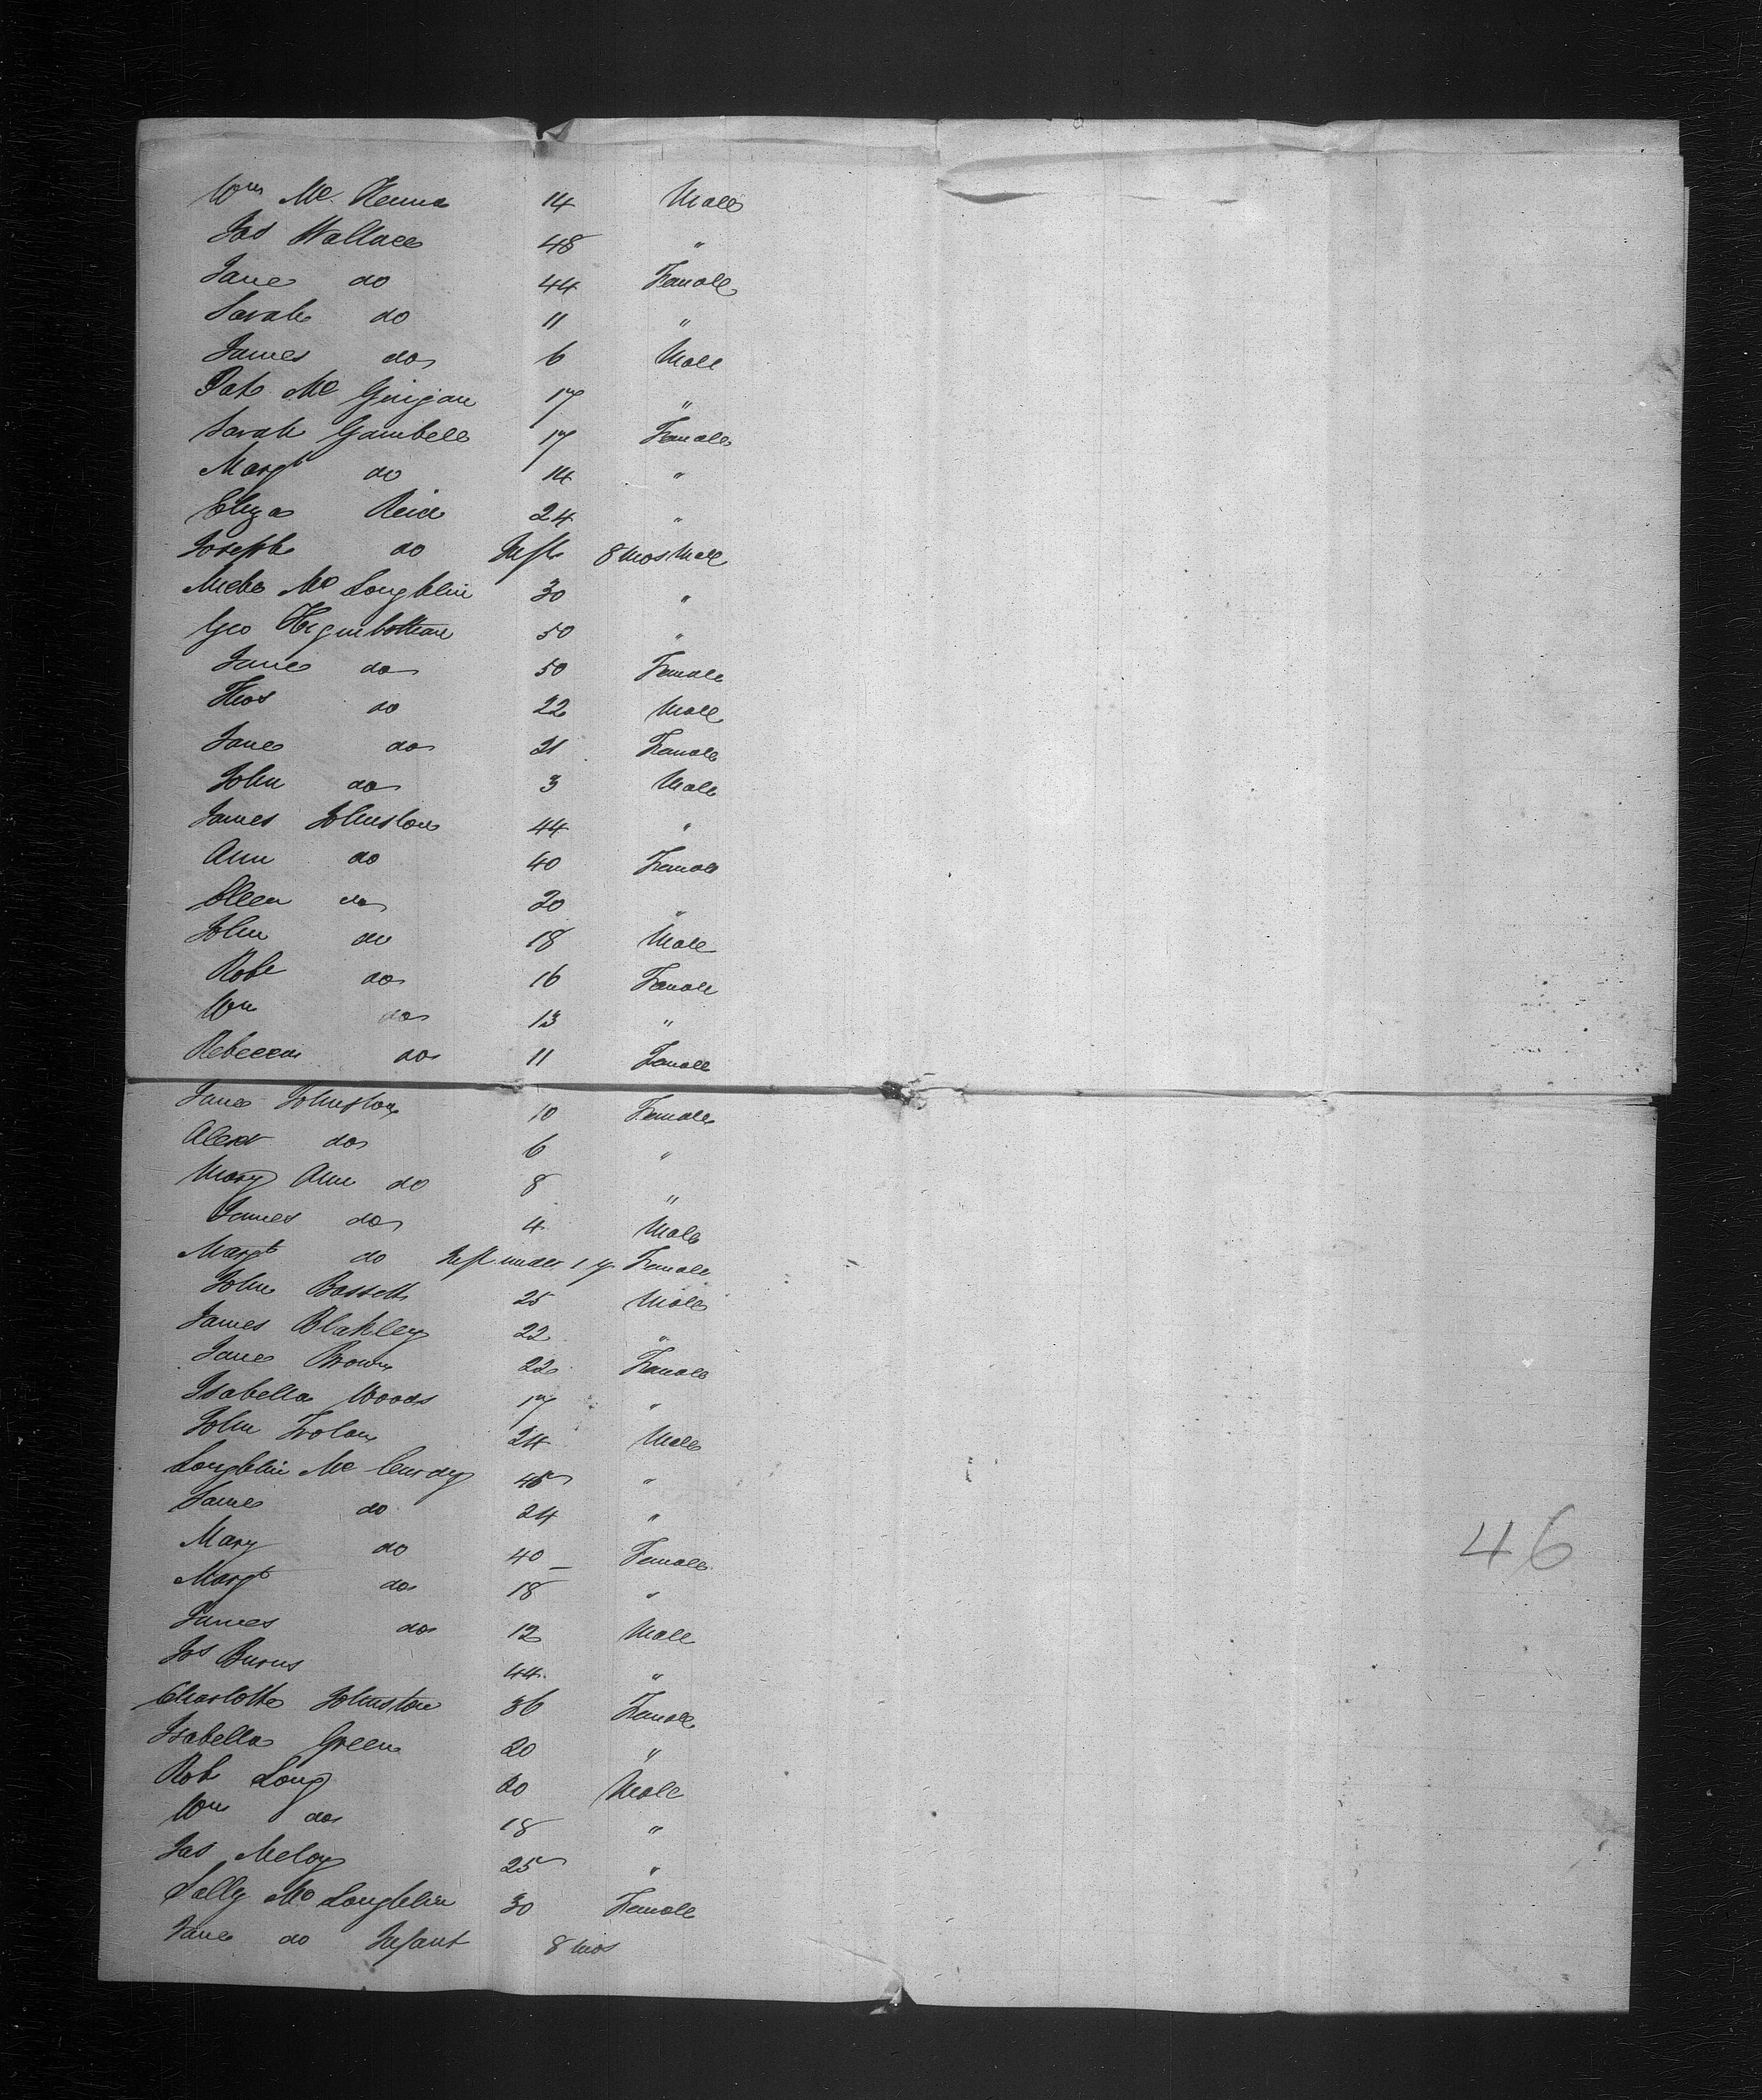 Wm Mc Kenna 14 Male
Jas Wallace 48 "
Jane do 44 Female
Sarah do 11 "
James do 6 Male
Pat Mc Guigan 17 "
Sarah Gambell 17 Female
Margt do 14 "
Eliza Reid 24 "
Joseph do Inft 8 mos Male
Mc Loughlin 30 "
Geo Higinbottom 50 "
Jane do 50 Female
Thos do 22 Male
Jane do 21 Female
John do 3 Male
James Johnston 44 "
Ann do 40 Female
Ellen do 20 "
John do 18 Male
Robt do 16 Female
Wm do 13 "
Rebecca do 11 Female
Jane Johnston 10 Female
Alexr do 6 "
Mary Ann do 8 "
James do 4 Male
Margt do Inft under 1 y Female
John Bassett 25 Male
James Blakley 22 "
Jane Brown 22 Female
Isabella Woods 17 "
John Trolan 24 Male
Loughlin Mc Curdy 45 "
James do 24 "
Mary do 40 Female
Margt do 18 "
James do 12 Male
Js Burns 44 "
Charlotte Johnston 36 Female
Isabella Green 20 "
Robt Long 20 Male
Wm do 18 "
Jas Meloy 25 "
Sally Mc Loughlin 30 Female
Jane do Infant 8 mos
46